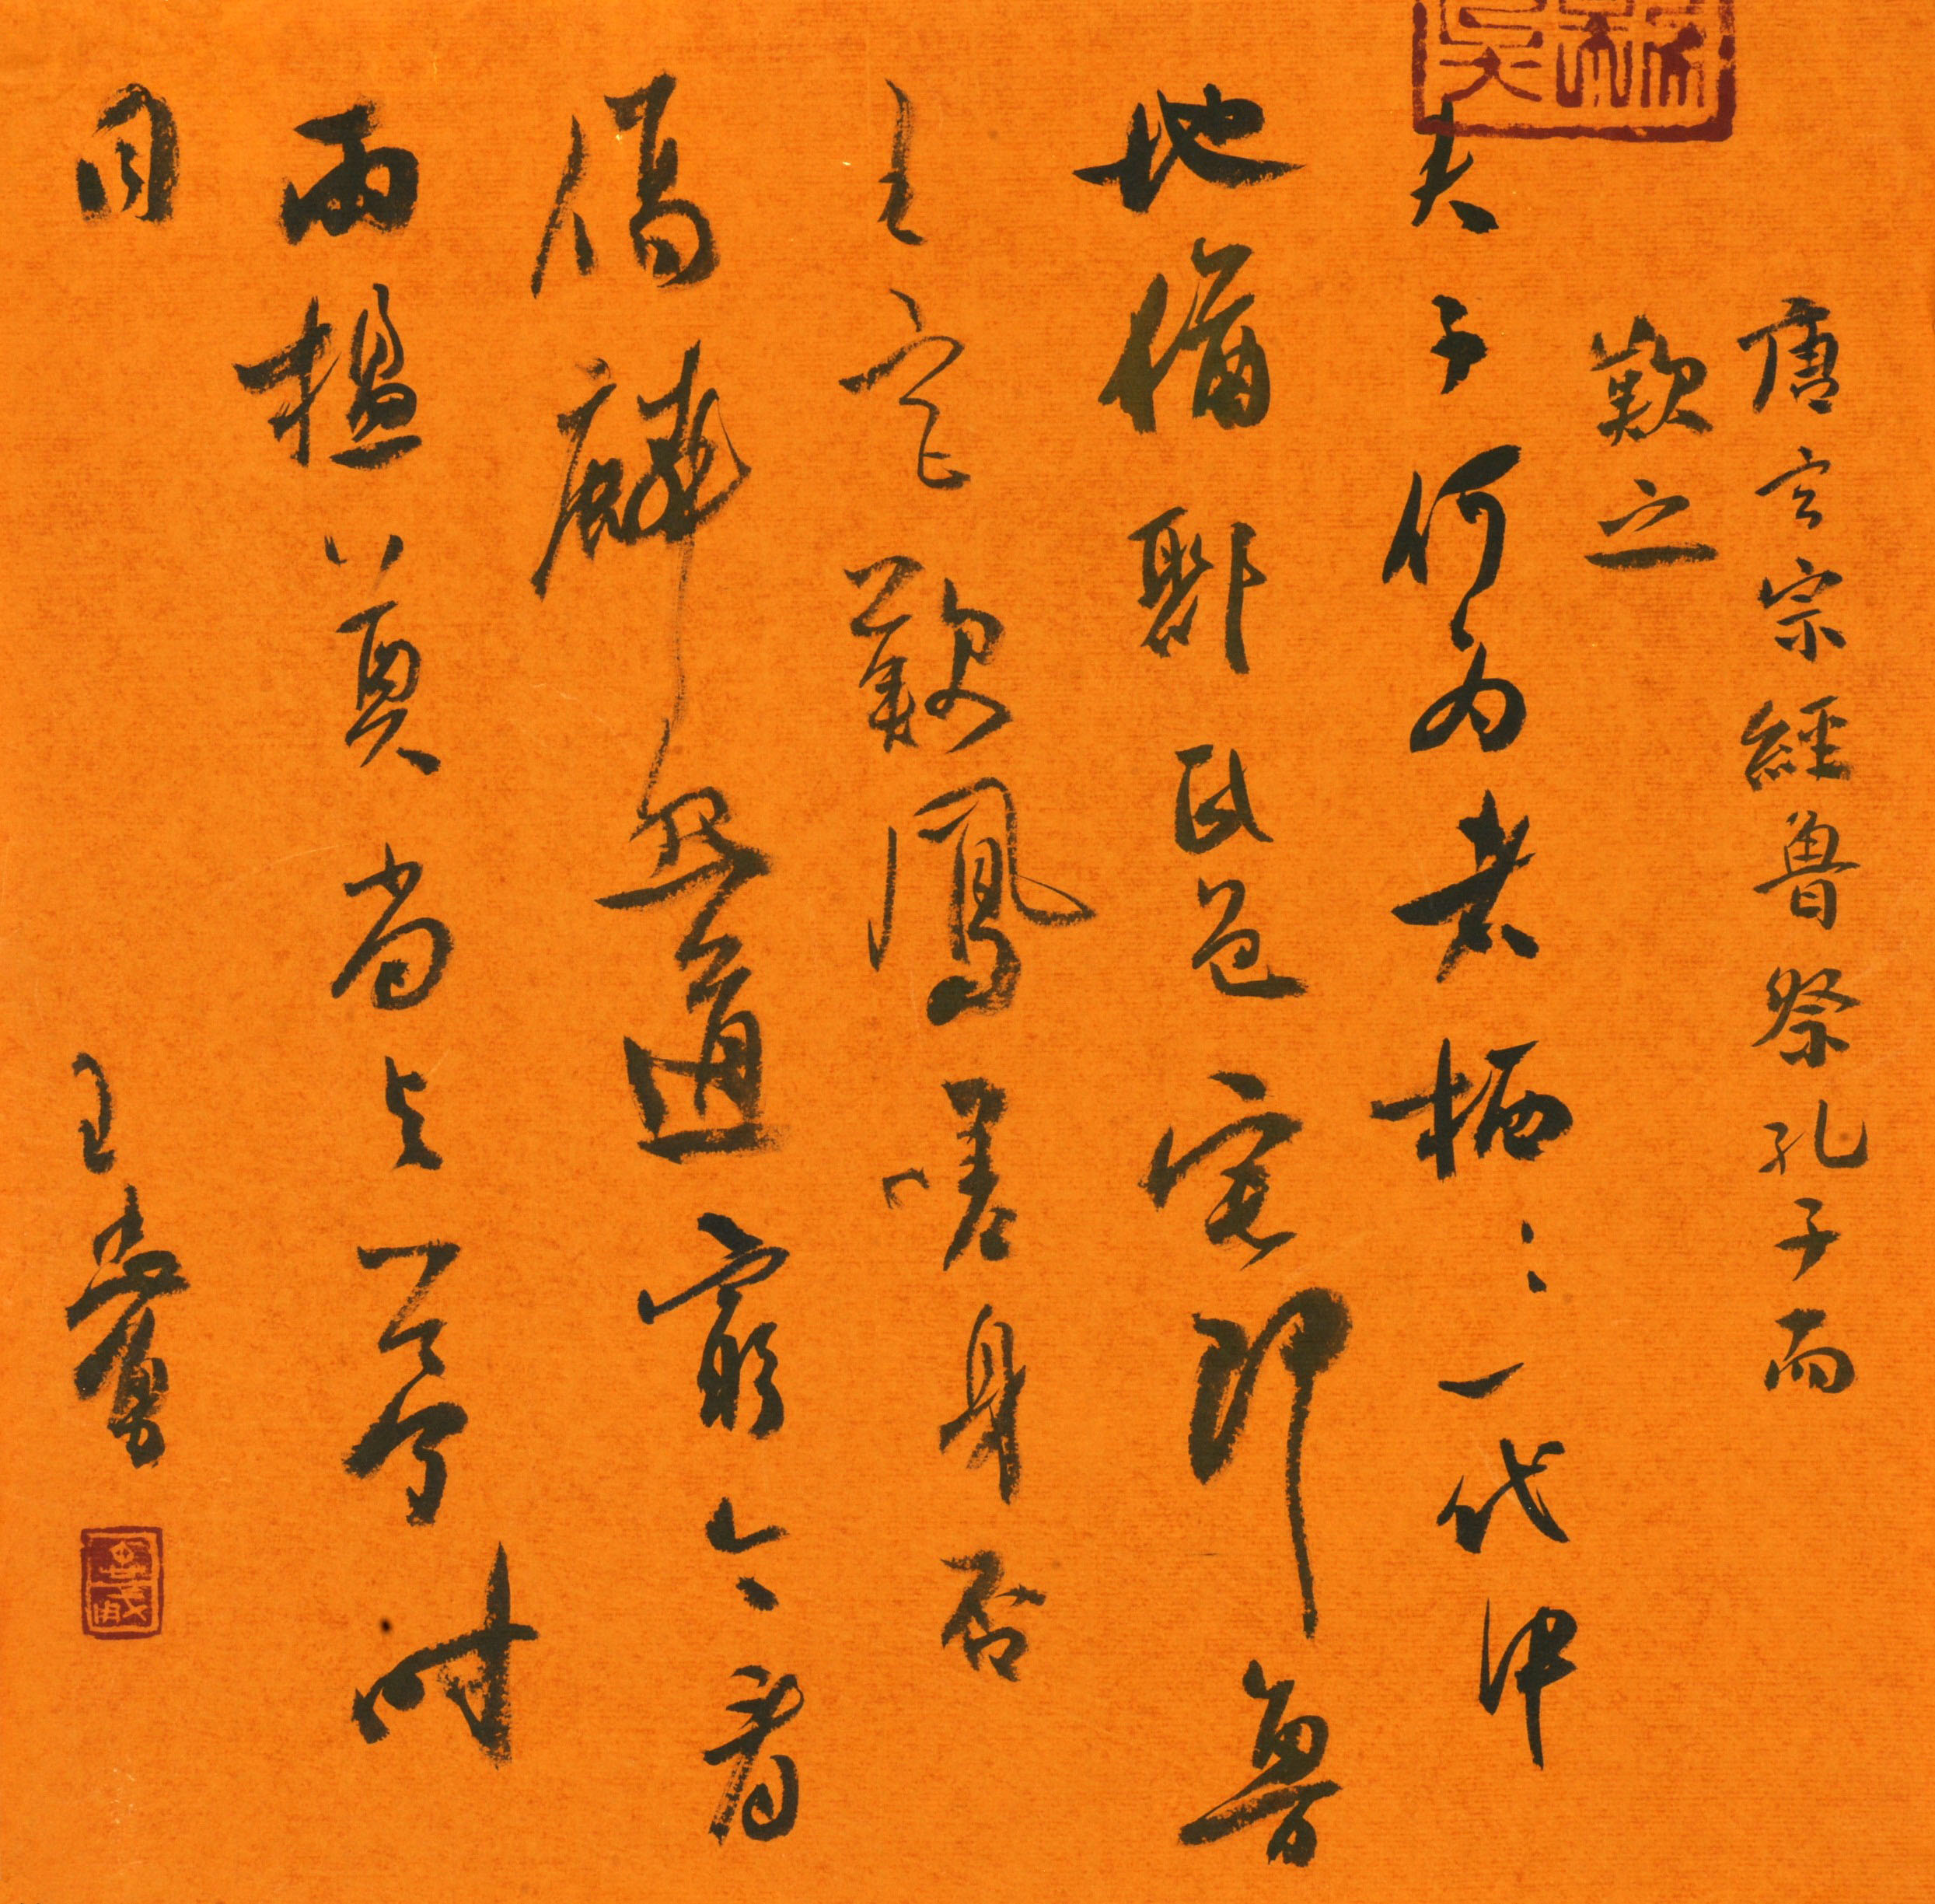 唐玄宗經魯祭孔子而
歎之
夫子何為者栖〻一代中
地猶鄹氏邑宅即魯
王宮歎鳳嗟身否
傷麟怨道窮今看
兩楹奠當与夢時
同
王